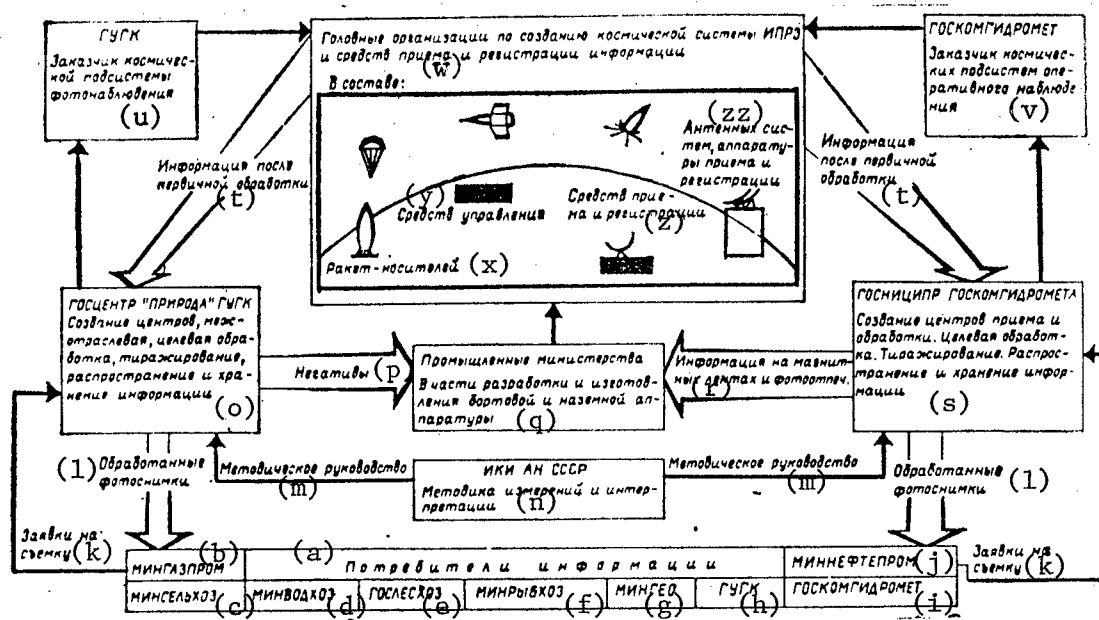 ГУГК
Заказчик космичес-
кой подсистемы
фотонаблюдения
(u)
Головные организации по созданию космической системы ИПРЗ
и средств приема и регистрации информации
(w)
В составе:
ГОСКОМГИДРОМЕТ
Заказчик космичес-
ких подсистем опе-
ративного наблюде
ния
(v)
(zz)
Антенных сис-
тем, аппарату-
ры приема и
регистрации
(y)
Средств управления
Средств прие-
ма и регистрации
(z)
Ракет-носителей (x)
Информация после
первичной обработки
(t)
Информация
после первичной
обработки
(t)
ГОСЦЕНТР "ПРИРОДА" ГУГК
Создание центров, меж-
отраслевая, целевая обра-
ботка, тиражирование,
распространение и хра-
нение информации
(o)
Негативы (p
Промышленные министерства
В части разработки и изготов-
ления бортовой и наземной ап-
паратуры
(q)
Информация на магнит-
ных лентах и фотоотпеч.
(r)
ГОСНИЦИПР ГОСКОМГИДРОМЕТА
Создание центров приема и
обработки. Целевая обработ-
ка. Тиражирование. Распрос-
транение и хранение инфор-
мации
(s)
(l) Обработанные
фотоснимки
Методическое руководство
(m)
ИКИ АН СССР
Методика измерений и интер-
претации
(n)
Методическое руководство
(m)
Обработанные
фотоснимки
(l)
Заявки на
съемку (k)
МИНГАЗПРОМ (b)
(a)
Потребители информации
МИННЕФТЕПРОМ (j)
Заявки на
съемку (k)
МИНСЕЛЬХОЗ (c) МИНВОДХОЗ (d) ГОСЛЕСХОЗ (e) МИНРЫБХОЗ (f) МИНГЕО (g) ГУГК (h) ГОСКОМГИДРОМЕТ (i)